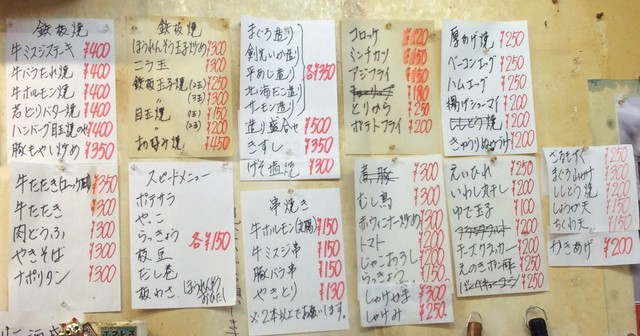 鉄板焼
牛ミスジステーキ ¥400
牛バラたれ焼 ¥400
牛ホルモン焼 ¥400
若とりバター焼 ¥400
ハンバーグ目玉焼のせ ¥400
豚もやし炒め ¥350
鉄板焼
ほうれんそう玉子炒め ¥300
ニラ玉 ¥300
鉄板玉子焼 (2玉) ¥250
〃 (3玉) ¥300
目玉焼 (1玉) ¥150
〃 (2玉) ¥200
お好み焼 ¥450
まぐろ造り
剣先いか造り
平あじ造り
北海モン造り
サーモン造り
各¥350
造り盛合せ ¥500
きずし ¥350
げそ塩焼 ¥300
コロッケ ¥120
ミンチカツ ¥150
アジフライ ¥150
とりから ¥250
ポテトフライ ¥200
厚あげ焼 ¥250
ベーコンエッグ ¥250
ハムエッグ ¥250
揚げシューマイ ¥200
ししとう焼 ¥200
きゅうりぬか漬け ¥200
牛たたき(ユッケ風) ¥350
牛たたき ¥300
肉どうふ ¥300
やきそば ¥300
ナポリタン ¥300
スピードメニュー
ポテサラ
やっこ
らっきょう
枝豆
だし巻
板わさ
ほうれんそうおひたし
各¥150
串焼き
牛ホルモン ¥150
牛ミスジ串 ¥150
豚バラ串 ¥150
やきとり ¥130
※2本以上でお願いします。
蒸し豚 ¥300
むし鳥 ¥300
赤ウィンナー炒め ¥300
トマト ¥200
じゃこおろし ¥200
らっきょう
しゃけ ¥300
しゃけみ ¥250
えいひれ ¥250
いわし丸干し ¥200
ゆで玉子 ¥100
チーズクラッカー ¥200
えのきポン酢 ¥250
¥250
さるもずく ¥250
まぐろ山かけ ¥300
ししとう焼 ¥200
しょうが天 ¥150
ちくわ天 ¥150
わきあげ ¥200